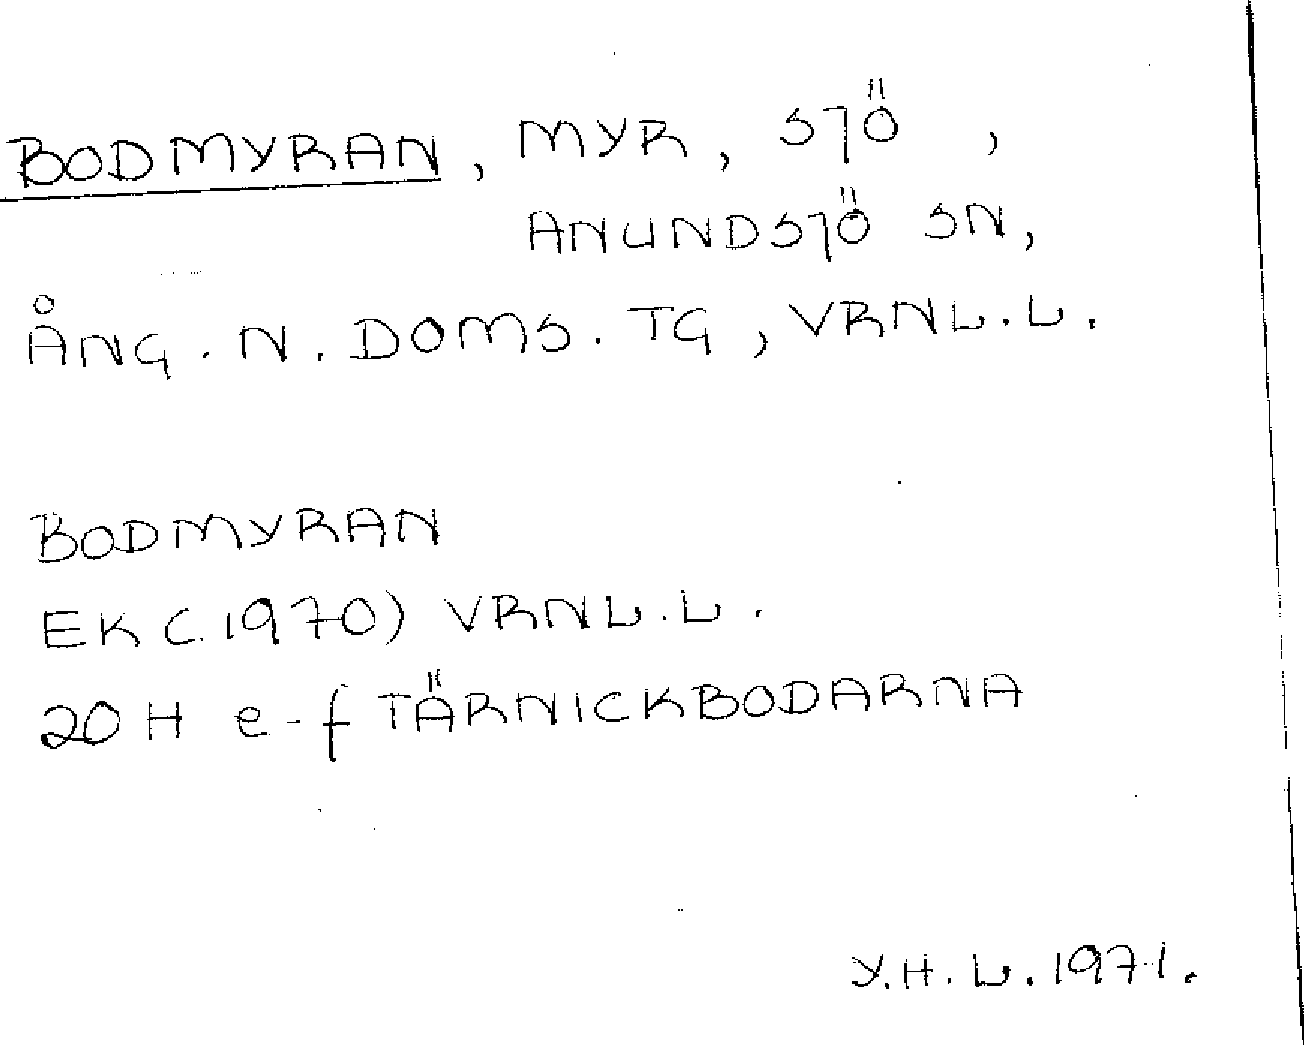 BODMYRAN, MYR, SJÖ,
ANUNDSJÖ SN,
ÅNG. N. DOMS. TG, VRNL.L.
BODMYRAN
EK (.1970) VRNL.L.
20 H e-f TÄRNICKBODARNA
Y.H.L. 1971.